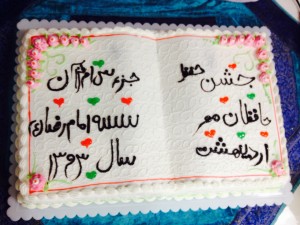 جشن حفظ جزء سی ام قرآن
حافظان مهر موسسه امام رضا
اردیبهشت سال ۱۳۹۳